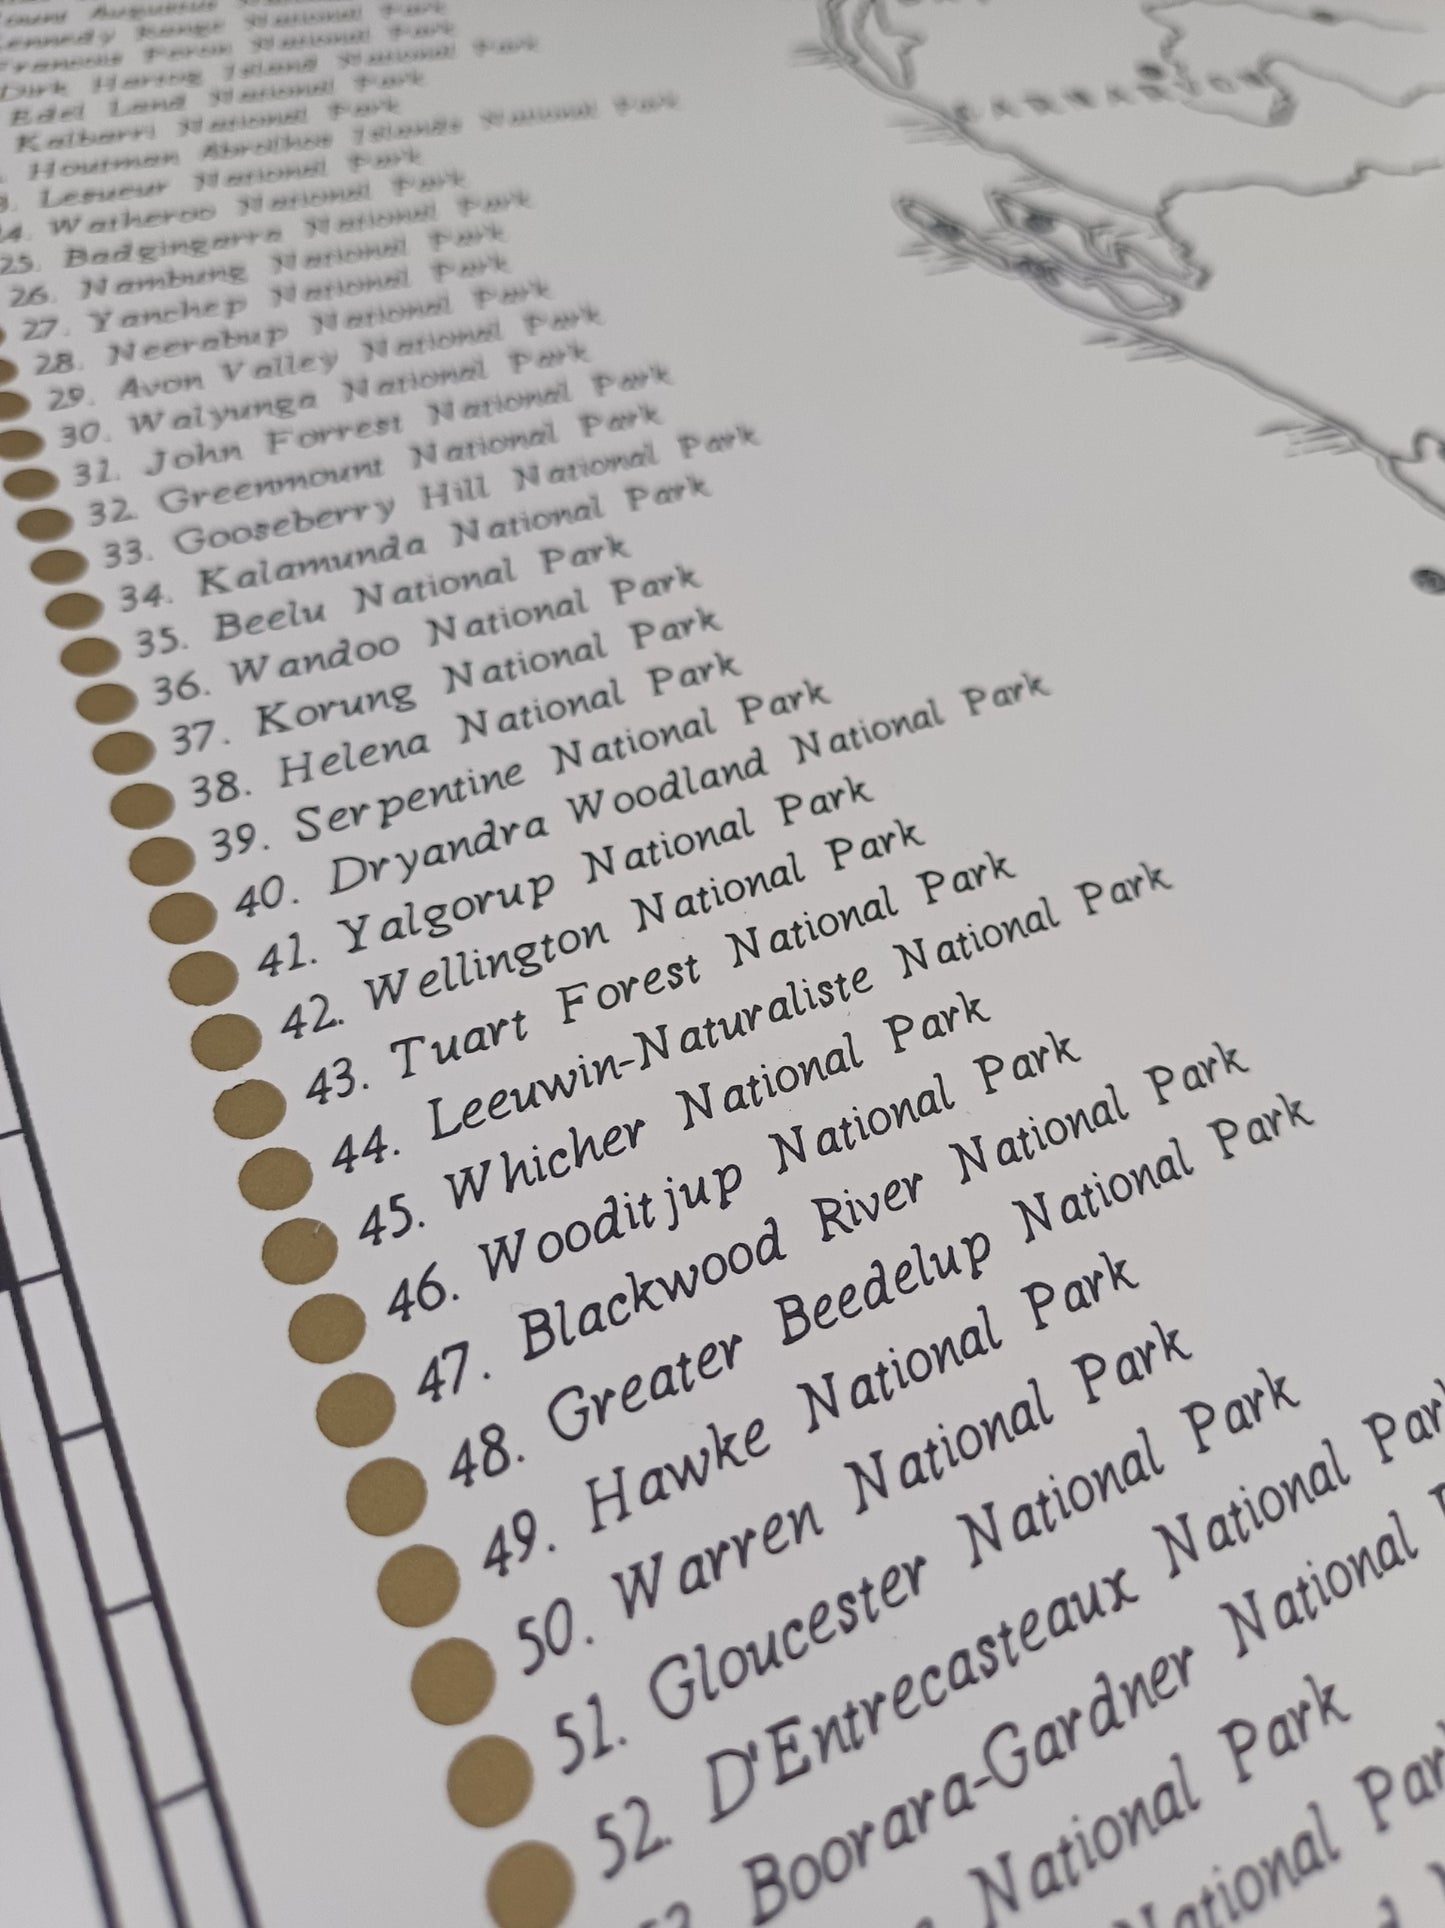 Mount Augustus National Park
Kennedy Range National Park
Francois Peron National Park
Dirk Hartog Island National Park
Edel Land National Park
Kalbarri National Park
Houtman Abrolhos Islands National Park
3. Lesueur National Park
24. Watheroo National Park
25. Badgingarra National Park
26. Nambung National Park
27. Yanchep National Park
28. Neerabup National Park
29. Avon Valley National Park
30. Walyunga National Park
31. John Forrest National Park
32. Greenmount National Park
33. Gooseberry Hill National Park
34. Kalamunda National Park
35. Beelu National Park
36. Wandoo National Park
37. Korung National Park
38. Helena National Park
39. Serpentine National Park
40. Dryandra Woodland National Park
41. Yalgorup National Park
42. Wellington National Park
43. Tuart Forest National Park
44. Leeuwin-Naturaliste National Park
45. Whicher National Park
46. Wooditjup National Park
47. Blackwood River National Park
48. Greater Beedelup National Park
49. Hawke National Park
50. Warren National Park
51. Gloucester National Park
52. D'Entrecasteaux National Park
53. Boorara-Gardner National
National Park
National Par
CARNARVON